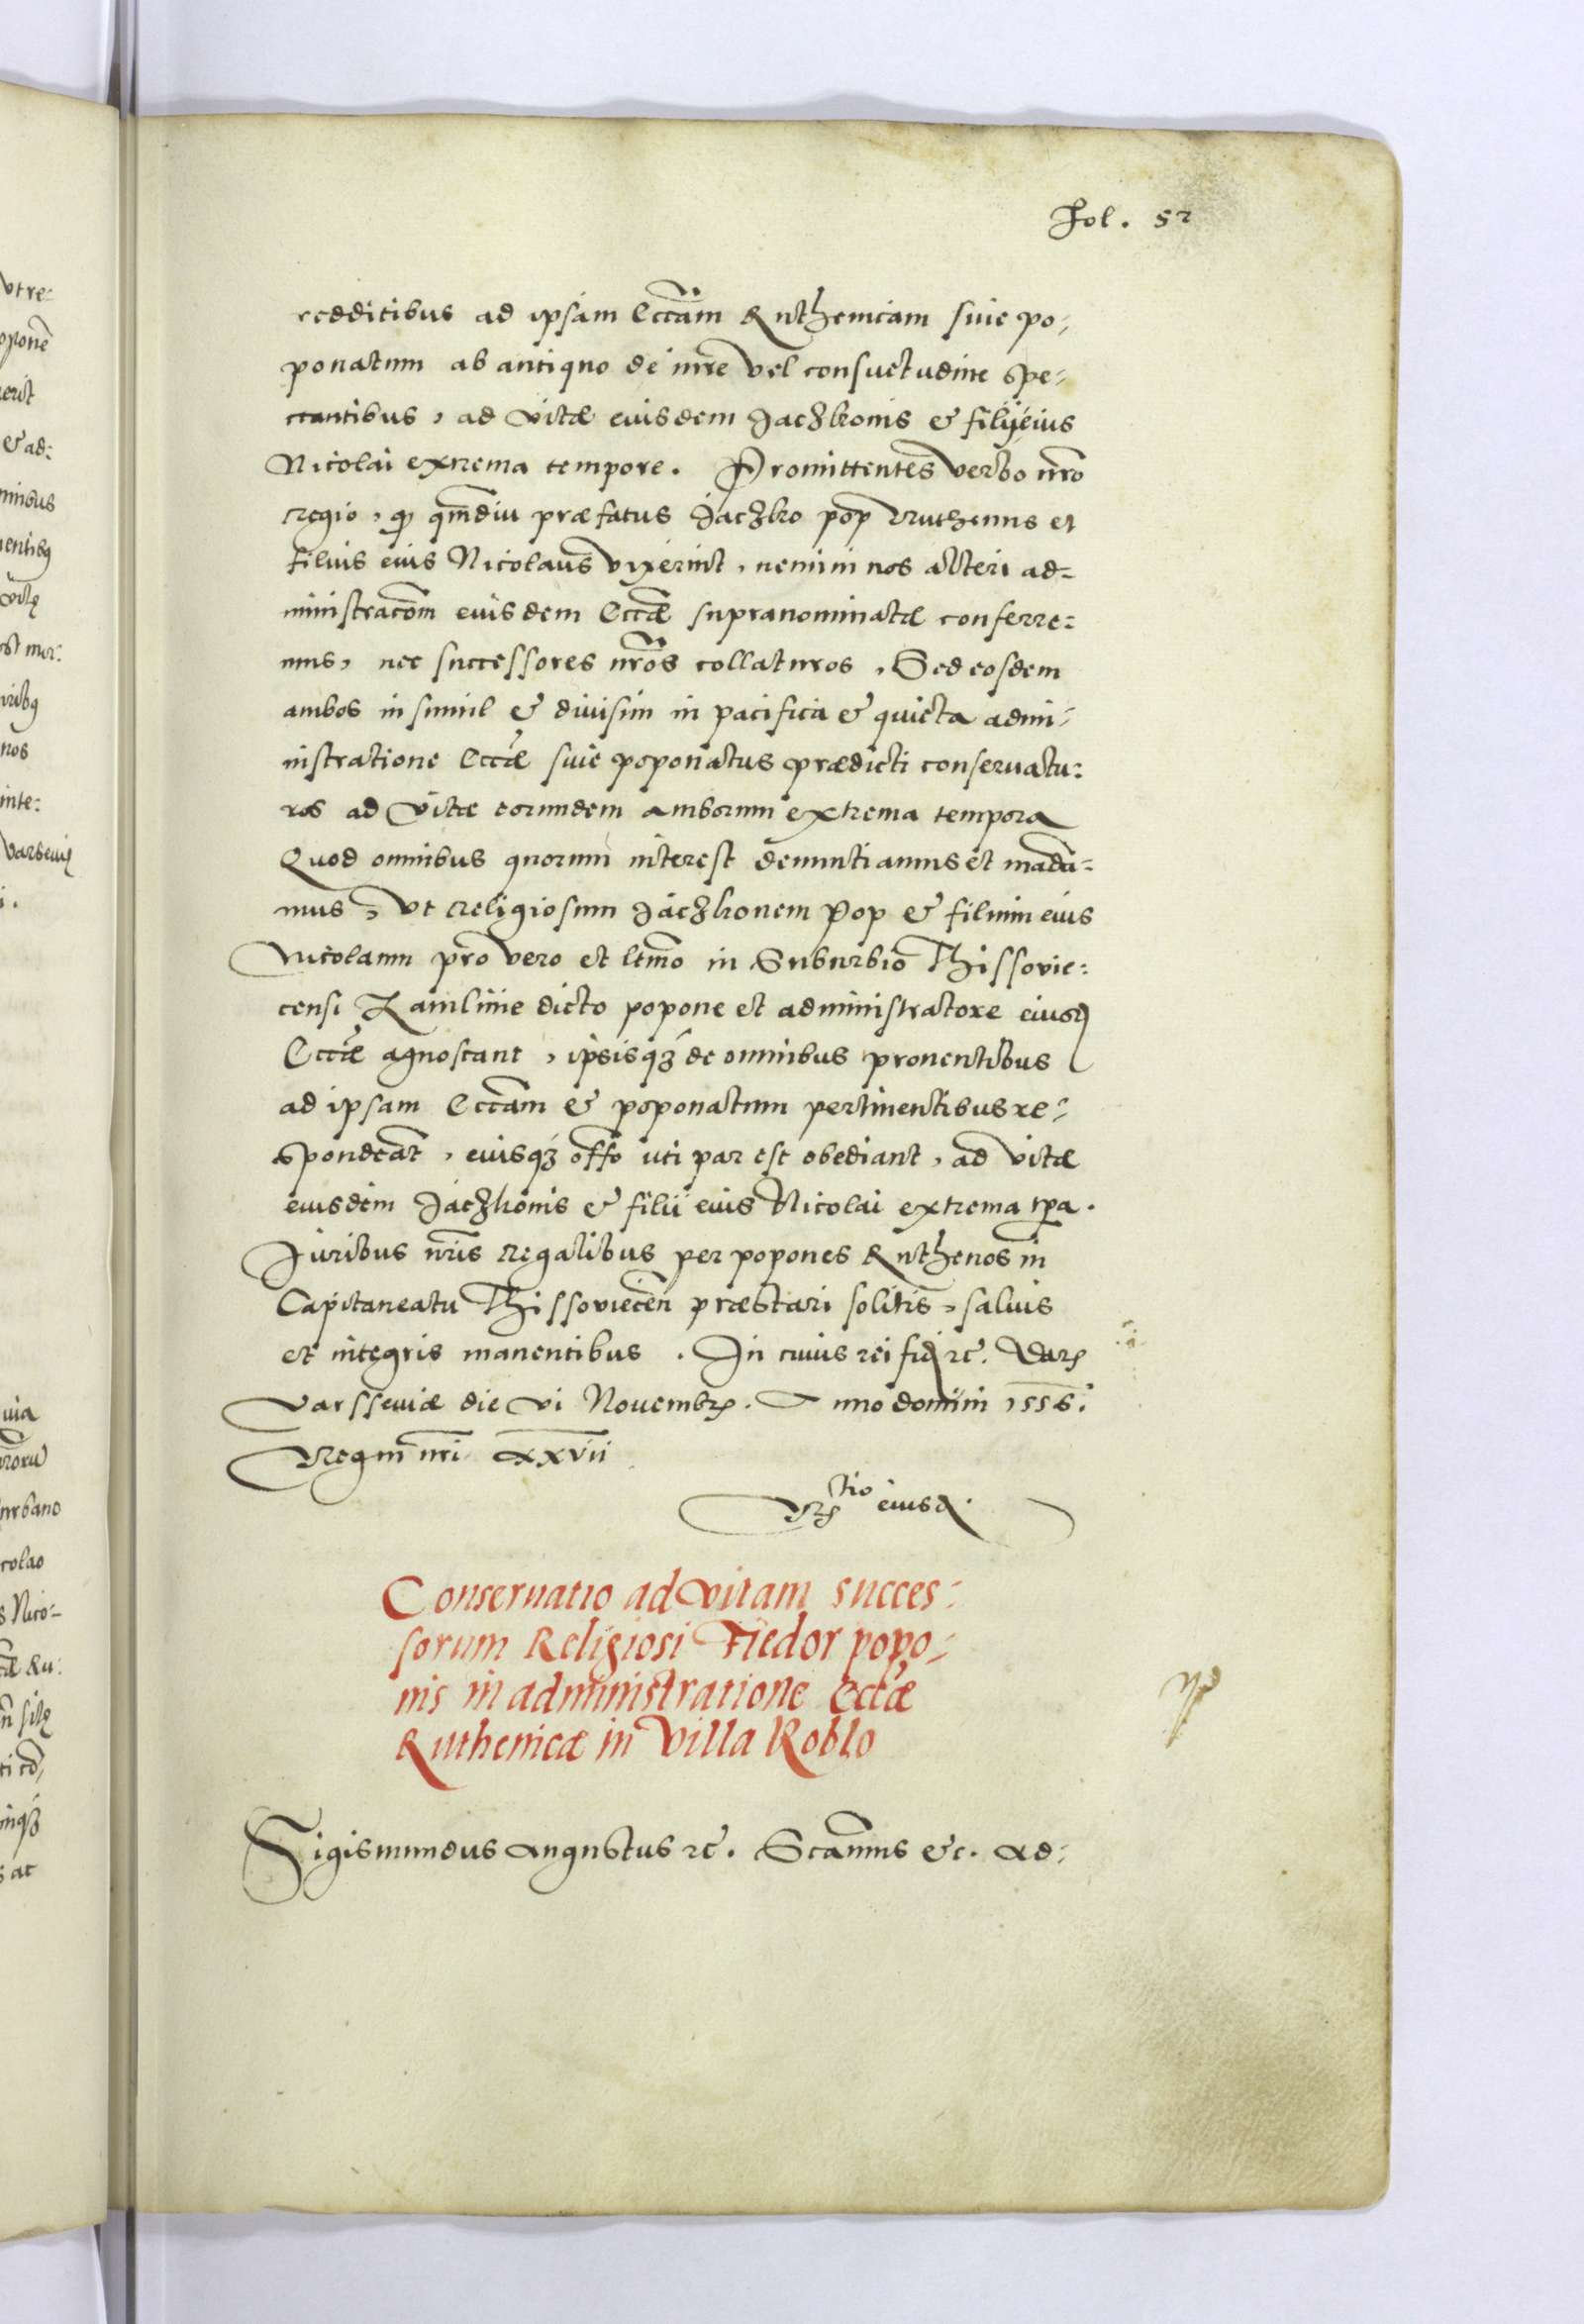 Fol. 52
redditibus ad ipsam Eccã̃m Ruthenicam siue po-
ponatum ab antiquo de iure vel consuetudine spe-
ctantibus, ad vitæ eiusdem Jaczkonis & filij eius
Nicolai extrema tempore. Promittentes verbo nr̃o
regio, q̃ qm̃diu præfatus Jaczko pop Ruthenus et
filius eius Nicolaus vixerint, nemini nos alteri ad-
ministracõm eiusdem Eccæ̃ supranominatæ conferre:
mus, nec successores nr̃os collaturos, Sed eosdem
ambos in simul & diuisim in pacifica & quieta admi-
nistratione Eccæ̃ siue poponatus prædicti conseruatu:
ros ad vitæ eorundem amborum extrema tempora
Quod omnibus quorum interest denuntiamus et mãdã-
mus, vt religiosum Jaczkonem Pop & filium eius
Nicolaum pro vero et ltm̃o in Suburbio Thissovie:
censi Zamlinie dicto popone et administratore eiusd
Eccæ̃ agnoscant, ipsisqꝫ de omnibus prouentibus
ad ipsam Eccãm & poponatum pertinentibus re-
spondeãt, eiusqꝫ offõ uti par est obediant, ad vitæ
eiusdem Jaczkonis & filii eius Nicolai extrema tp̃a.
Juribus nr̃is regalibus per popones Ruthenos in
Capitaneatu Thissoviecen̄ præstari solitis, saluis
et integris manentibus. In cuius rei fid rc̃. Dat
Varsseuiæ die vi Nouembr. Anno domini 1556.
Regni nr̃i xxvii
Rtio eiusd.
Conseruatio ad vitam succes:
sorum Religiosi Fiedor popo-
nis in administratione Eccæ̃
Ruthenicæ in Villa Koblo
Sigismundus Augustus rc̃. Sc̃amus &c. Ad-